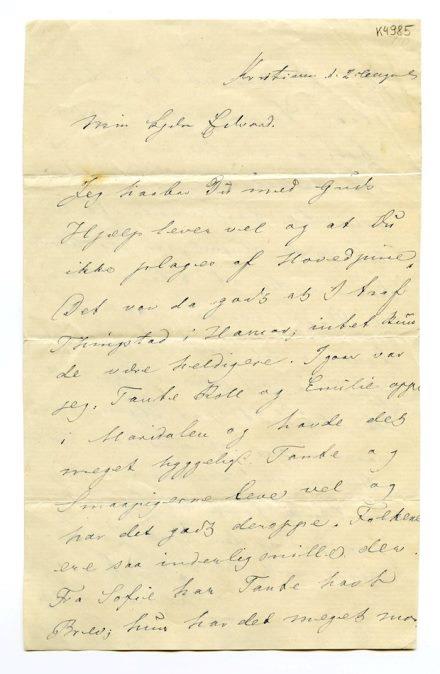 K4985
Kristiania d. 2 August
Min kjære Edvard.
Jeg haaber Du med Guds
Hjælp lever vel og at Du
ikke plages af Hovedpine.
Det var da godt at I traf
Thingstad i Hamar; intet kun
de være heldigere. Igaar var
jeg, Tante Boll og Emilie oppe
i Maridalen og havde det
meget hyggeligt. Tante og
Smaapigerne leve vel og
har det godt deroppe. Folkene
ere saa inderlig snille der.
Fra Sofie har Tante havt
Brev; hun har det meget mor